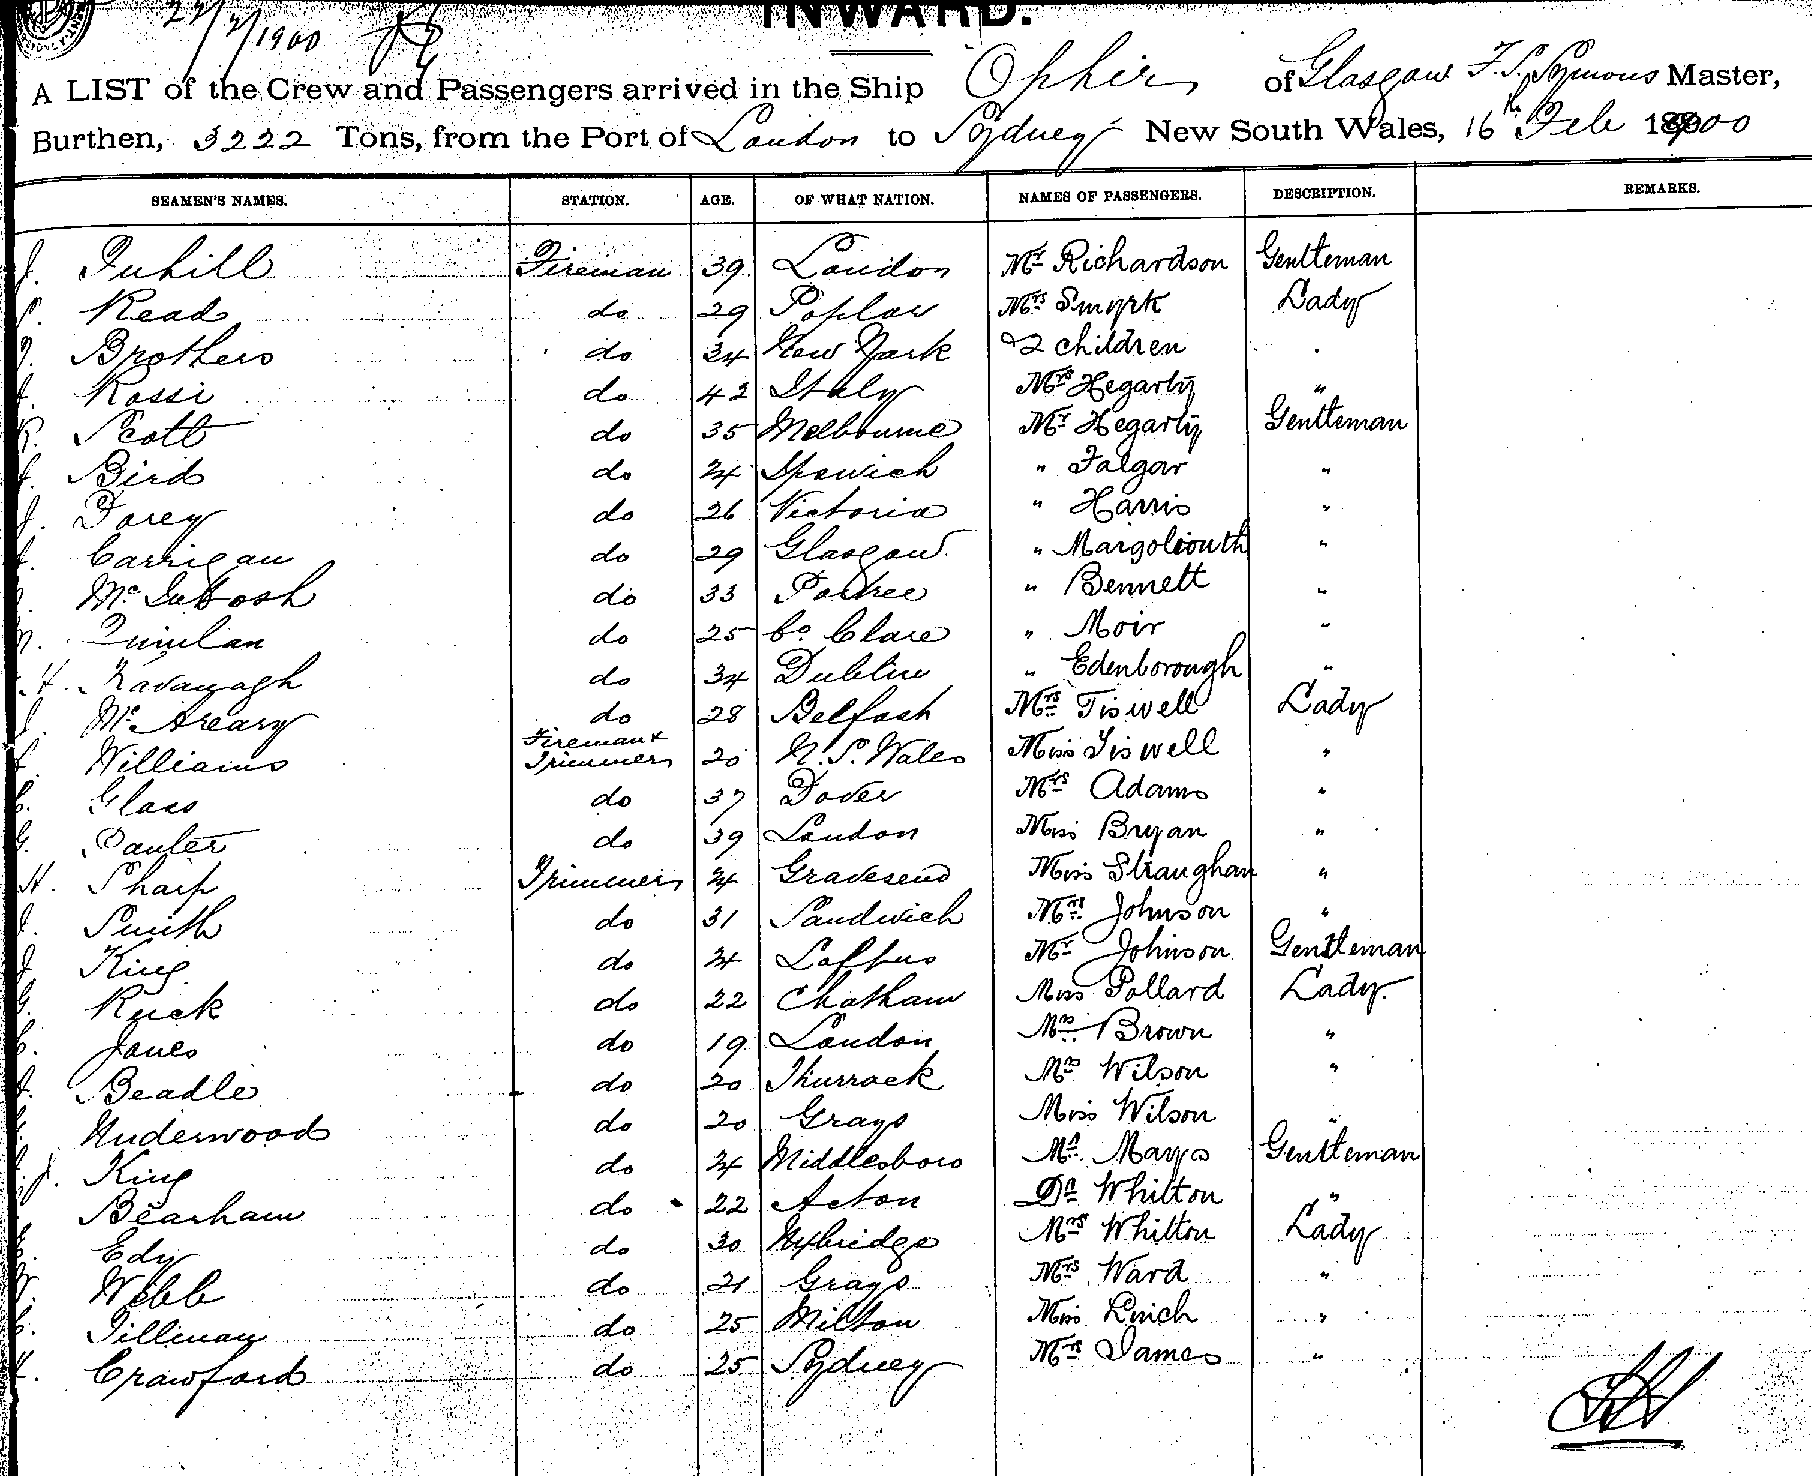 22/2/1900
INWARD.
A LIST of the Crew and Passengers arrived in the Ship Ophir of Glasgow F. S. Symons Master,
Burthen, 3222 Tons, from the Port of London to Sydney New South Wales, 16th Feb 1900
SEAMEN'S NAMES. STATION. AGE. OF WHAT NATION. NAMES OF PASSENGERS. DESCRIPTION. REMARKS.
J. Tuhill Fireman 39 London Mr Richardson Gentleman
Read do 29 Poplar Mrs Smyrk Lady
Brothers do 34 New York 2 children
Rossi do 42 Italy Mrs Hegarty "
R. Scott do 35 Melbourne Mr Hegarty Gentleman
Bird do 24 Ipswich " Falgar "
J. Dorey do 26 Victoria " Harris "
Carrigan do 29 Glasgow " Margoliouth "
McIntosh do 33 Portree " Bennett "
Quinlan do 25 Co. Clare " Moir "
Kavanagh do 34 Dublin " Edenborough "
McAreary do 28 Belfast Mrs Tiswell Lady
Williams Fireman & Trimmers 20 N. S. Wales Miss Tiswell "
Glass do 37 Dover Mrs Adams "
Panter do 39 London Miss Bryan "
H. Sharp Trimmers 24 Gravesend Miss Straughan "
Smith do 31 Sandwich Mrs Johnson "
J. King do 24 Loftus Mr Johnson Gentleman
G. Ruck do 22 Chatham Miss Pollard Lady.
Jones do 19 London Mrs Brown "
Beadle do 20 Thurrock Mrs Wilson "
Underwood do 20 Grays Miss Wilson "
J. King do 24 Middlesboro Mr. Mayo Gentleman
Bearham do 22 Acton Dr Whitton "
Edy do 30 Uxbridge Mrs Whitton Lady
W. Webb do 21 Grays Mrs Ward "
Tillman do 25 Milton Miss Linch "
Crawford do 25 Sydney Mrs James "